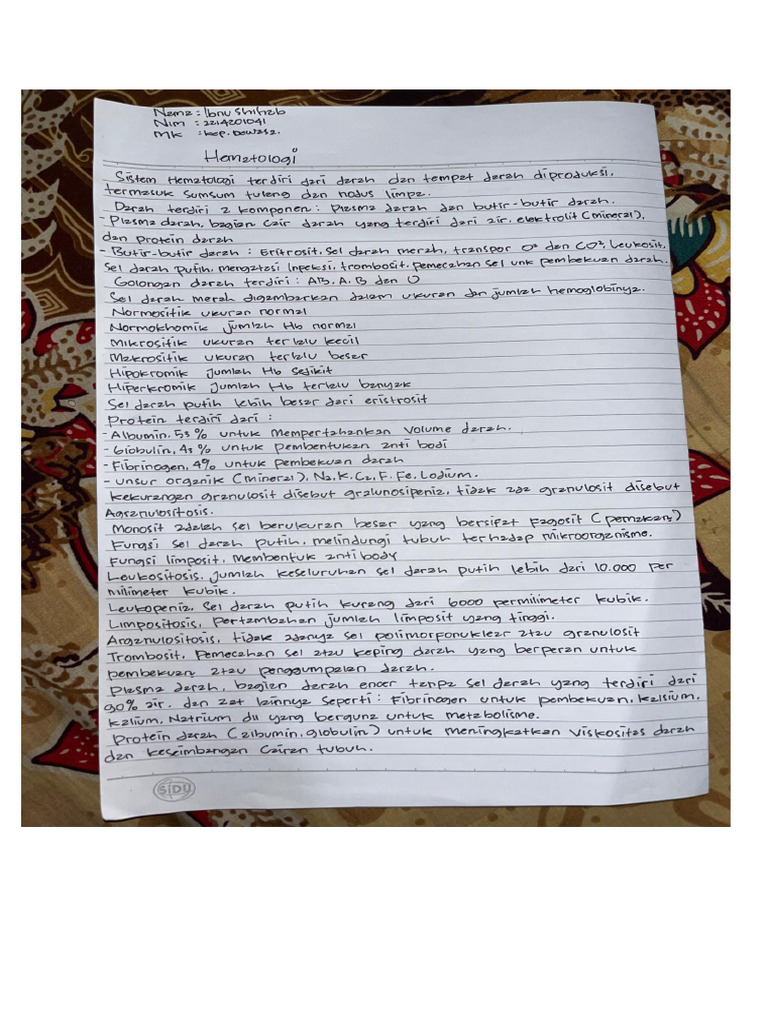 Nama : Ibnu Shihab
Nim : 2214201041
MK : kep. Dewasa.
Hematologi
Sistem Hematologi terdiri dari darah dan tempat darah diproduksi,
termasuk sumsum tulang dan nodus limpa.
Darah terdiri 2 komponen : Plasma darah dan butir-butir darah.
- Plasma darah, bagian cair darah yang terdiri dari air, elektrolit (mineral),
dan protein darah
- Butir-butir darah : Eritrosit, sel darah merah, transpor O² dan CO², Leukosit,
Sel darah putih, mengatasi Inpeksi, trombosit, pemecahan sel unk pembekuan darah.
Golongan darah terdiri : AB, A, B dan O
Sel darah merah digambarkan dalam ukuran dan jumlah hemoglobinya.
Normositik ukuran normal
Normokhomik jumlah Hb normal
Mikrositik ukuran terlalu kecil
Makrositik ukuran terlalu besar
Hipokromik jumlah Hb sedikit
Hiperkromik jumlah Hb terlalu banyak
Sel darah putih lebih besar dari eristrosit
Protein terdiri dari :
- Albumin, 53% untuk mempertahankan volume darah.
- Globulin, 43% untuk pembentukan anti bodi
- Fibrinogen, 4% untuk pembekuan darah
- unsur organik (mineral), Na, K, Ca, F, Fe, Lodium.
kekurangan granulosit disebut gralunosipenia, tidak ada granulosit disebut
Agranulositosis.
Monosit adalah sel berukuran besar yang bersifat fagosit (pemakan)
Fungsi sel darah putih, melindungi tubuh terhadap mikroorganisme.
Fungsi limposit, Membentuk anti body
Leukositosis, jumlah keseluruhan sel darah putih lebih dari 10.000 per
milimeter kubik.
Leukopenia, sel darah putih kurang dari 6000 permilimeter kubik.
Limpositosis, pertambahan jumlah limposit yang tinggi.
Arganulositosis, tidak adanya sel polimorponuklear atau granulosit
Trombosit, pemecahan sel atau keping darah yang berperan untuk
pembekuan atau penggumpalan darah.
Plasma darah, bagian darah encer tanpa sel darah yang terdiri dari
90% air, dan zat lainnya seperti : Fibrinogen untuk pembekuan, kalsium,
kalium, Natrium dll yang berguna untuk metabolisme.
Protein darah (albumin, globulin) untuk meningkatkan viskositas darah
dan keseimbangan cairan tubuh.
SIDU